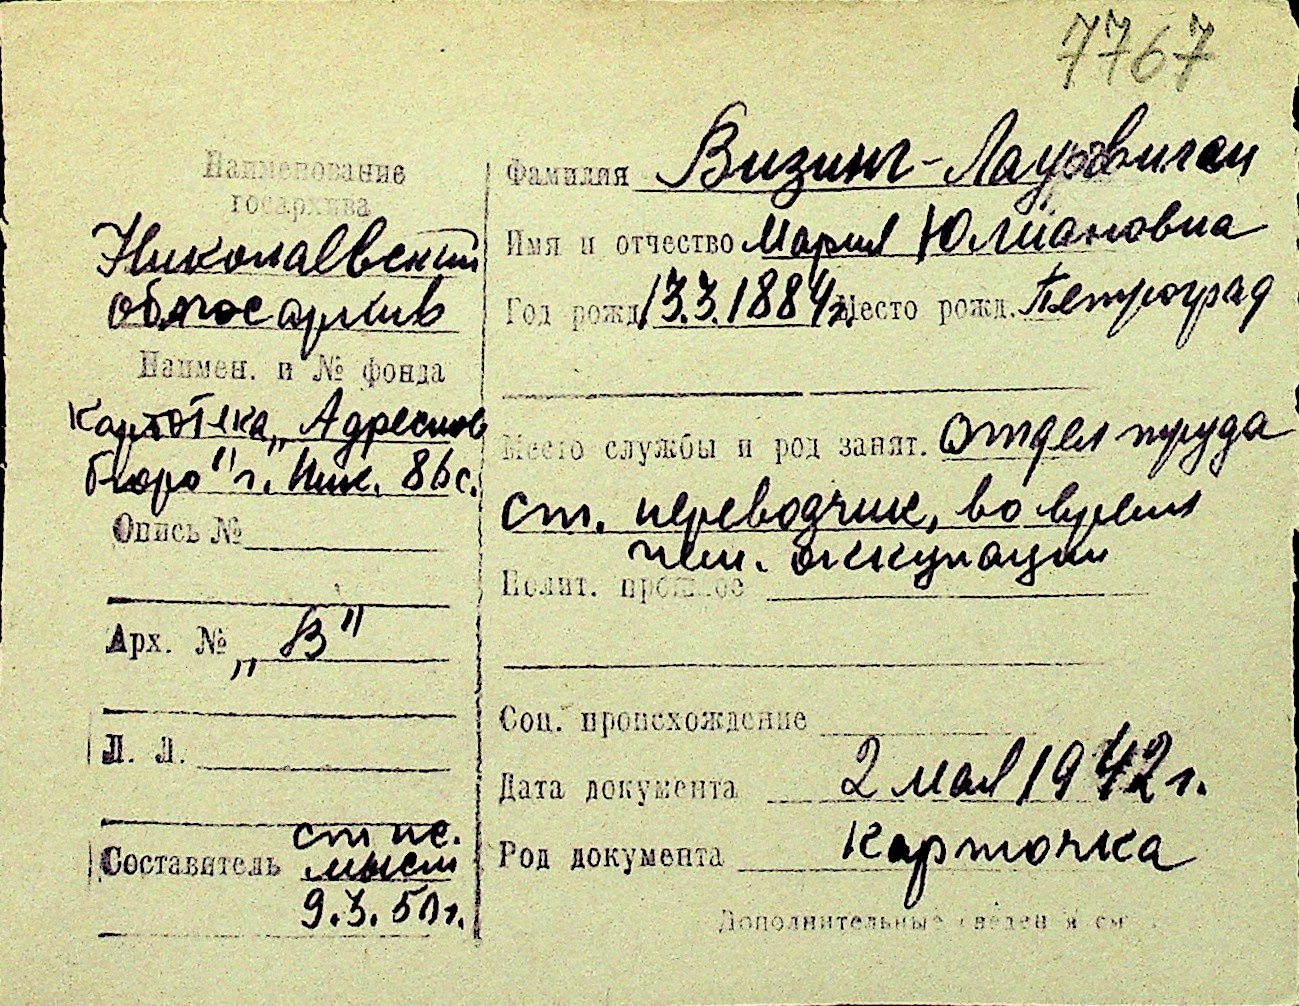 7767
Наименование
госархива
Николаевский
облгосархив
Наимен. и № фонда
Картотека „Адресное
бюро" г. Ник. 86 с.
Опись №
Арх. № „В"
Л. Л.
Составитель
9.3.50 г.
Фамилия Визинг-
Имя и отчество Мария Юлиановна
Год рожд. 13.3.1884 г. Место рожд. Петроград
Место службы и род занят. Отдел труда
ст. переводчик, во время
нем. оккупации
Полит. прошлое
Соц. происхождение
Дата документа 2 мая 1942 г.
Род документа карточка
Дополнительные сведения см.